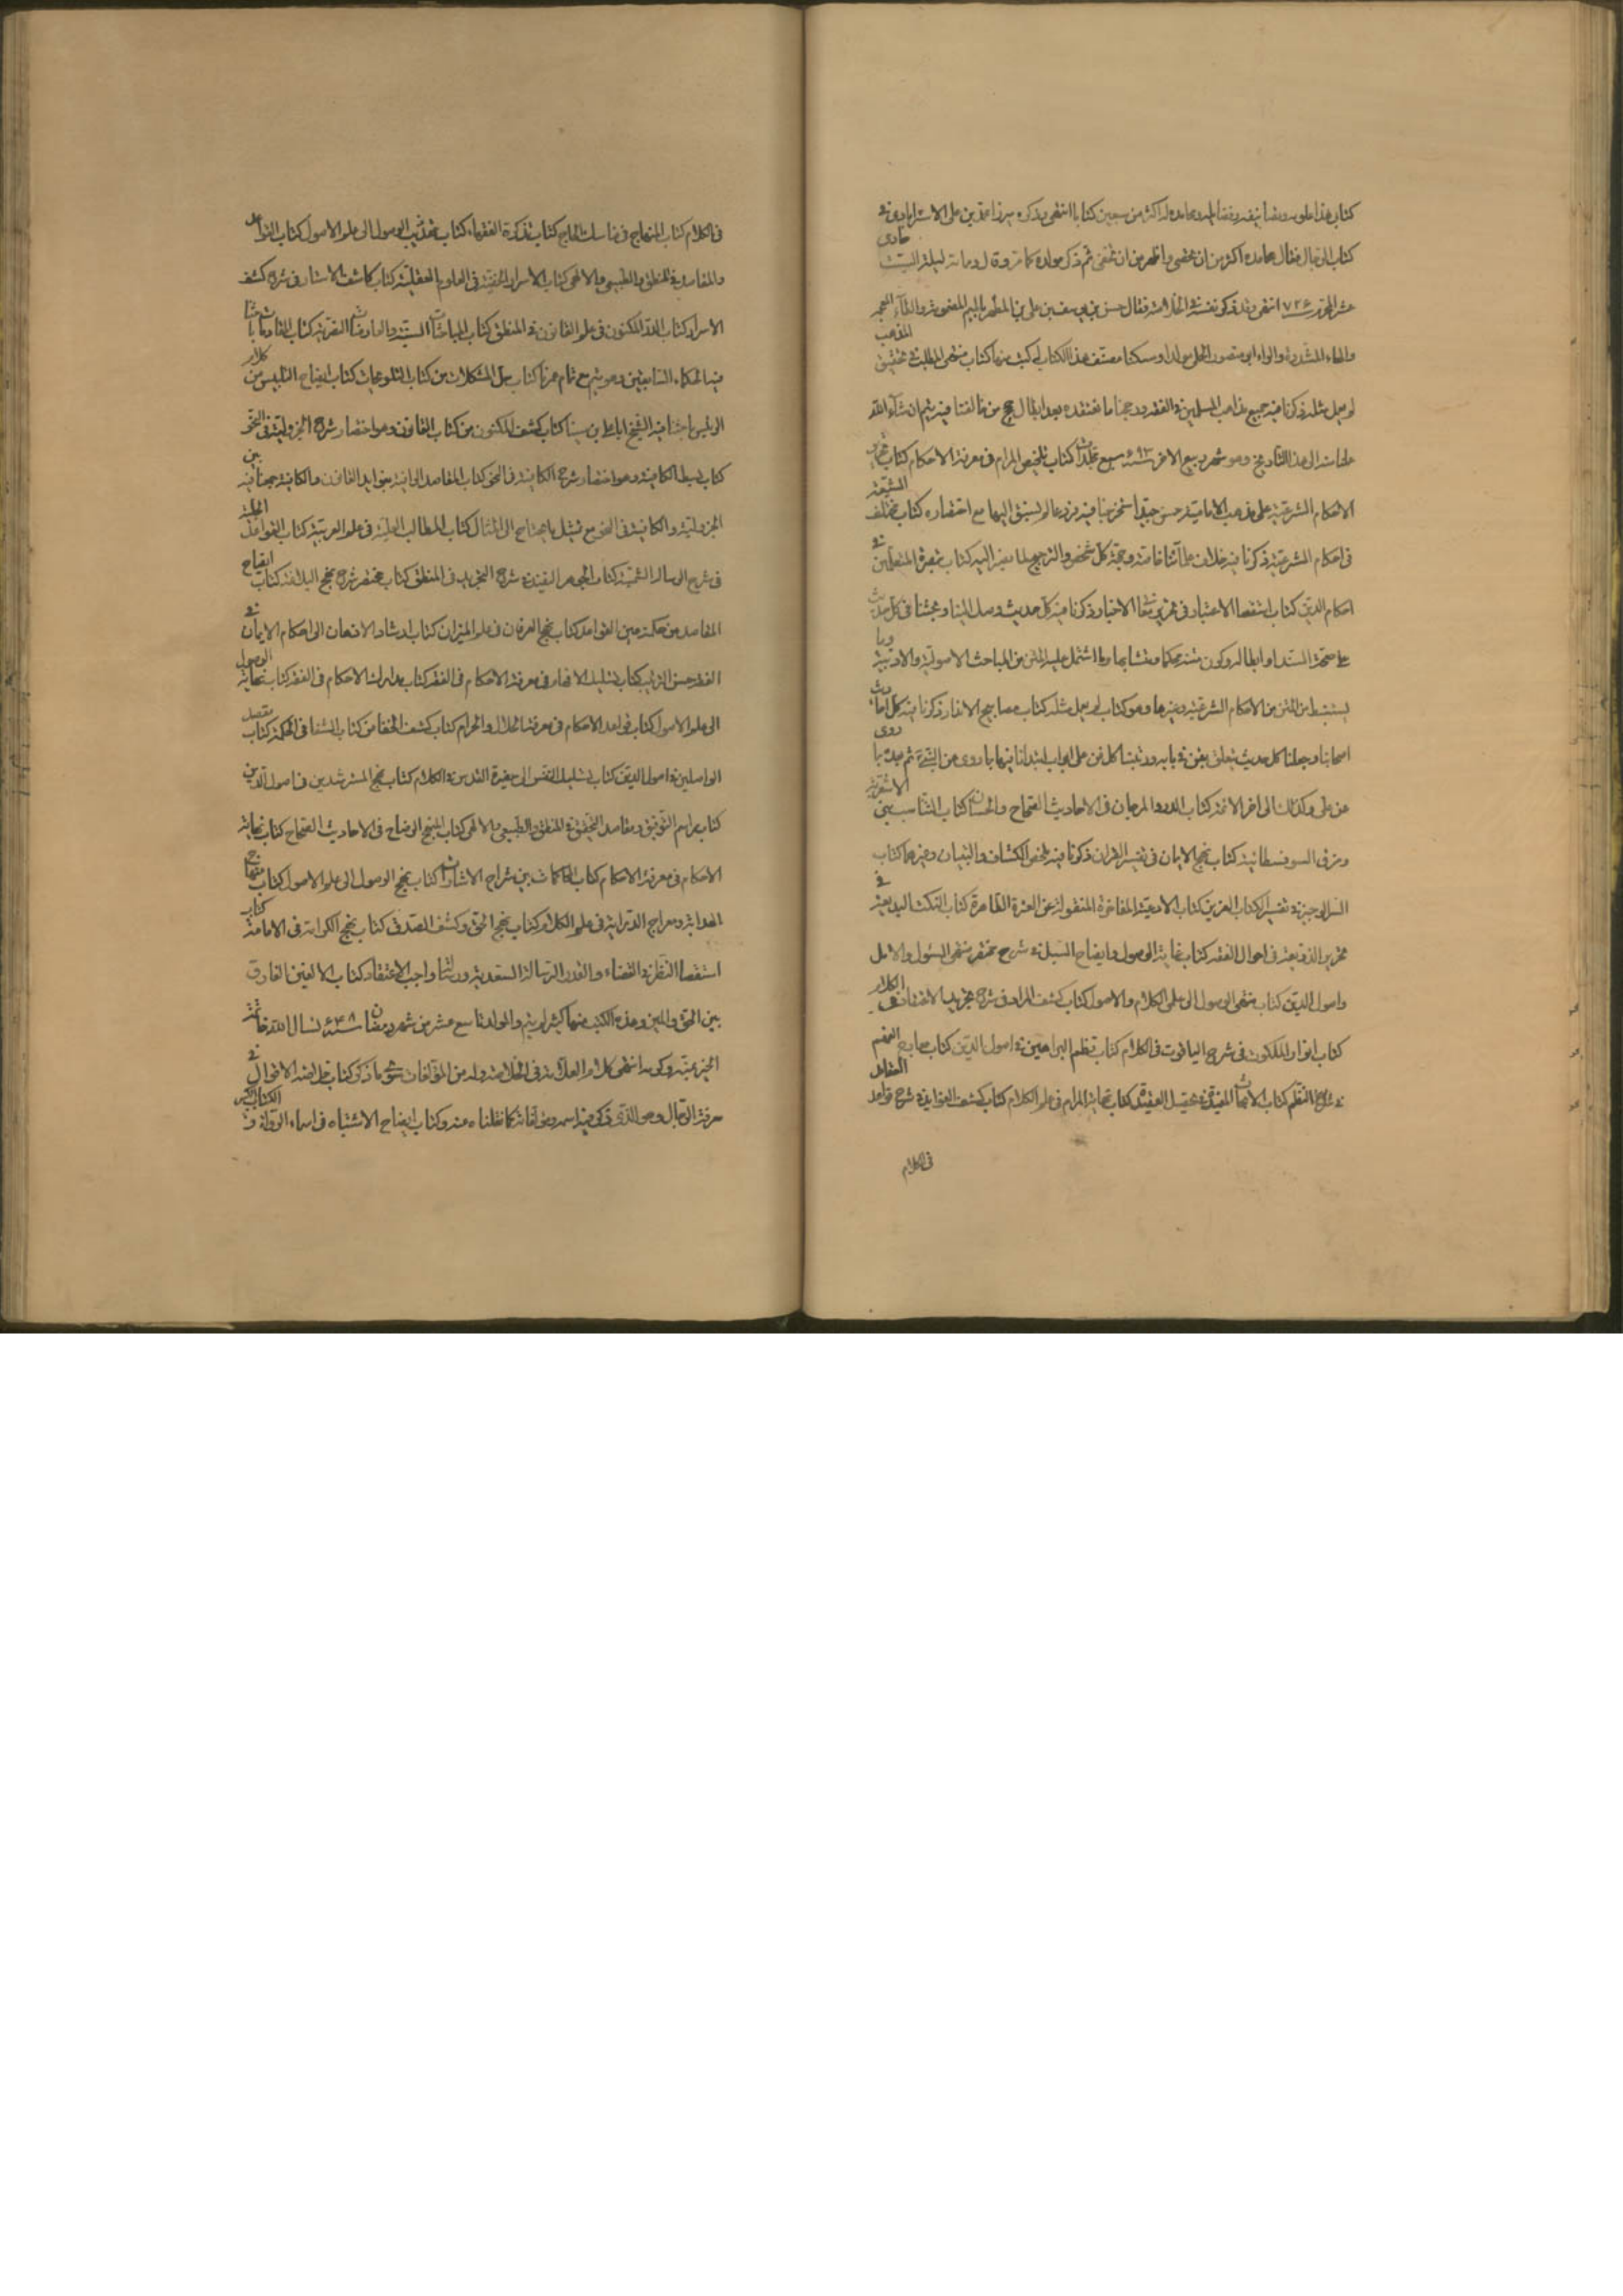 كتاب هذا علومه وتصانيفه وفضائله ومحامده له اكثر من سبعين كتابا انتهى وذكره ميرزا محمد بن على الاسترابادى فى
كتاب الرجال فقال محامده اكثر من ان تحصى واظهر من ان تخفى ثم ذكر مولده كما مر وقال ومات ليلة السبت حادى
عشر المحرم سنة ٧٢٦ انتهى وقد ذكر نفسه فى الخلاصة فقال حسن بن يوسف بن على بن المطهر بالميم المضمومة والطاء المعجمة
والهاء المشددة والراء ابو منصور الحلى مولدا ومسكنا مصنف هذا الكتاب له كتب منها كتاب منتهى المطلب فى تحقيق المذهب
لم يعمل مثله ذكرنا فيه جميع مذاهب المسلمين فى الفقه ورجحنا ما نعتقده بعد ابطال حجج من خالفنا فيه يتم ان شاء الله
عملنا منه الى هذا التاريخ وهو شهر ربيع الاخر سنة ٦٩٣ سبع مجلدات كتاب تلخيص المرام فى معرفة الاحكام كتاب تحرير
الاحكام الشرعية على مذهب الامامية حسن جيد استخرجنا فيه فروعا لم نسبق اليها مع اختصاره كتاب مختلف الشيعة
فى احكام الشريعة ذكرنا فيه خلاف علمائنا خاصة وحجة كل شخص والترجيح لما نصير اليه كتاب تبصرة المتعلمين فى
احكام الدين كتاب استقصاء الاعتبار فى تحرير معانى الاخبار ذكرنا فيه كل حديث وصل الينا وبحثنا فى كل حديث
على صحة السند او ابطاله وكون متنه محكما او متشابها وما اشتمل عليه المتن من المباحث الاصولية والادبية وما
يستنبط من المتن من الاحكام الشرعية وغيرها وهو كتاب لم يعمل مثله كتاب مصابيح الانوار ذكرنا فيه كل احاديث
اصحابنا وجعلنا كل حديث يتعلق بفن فى بابه ورتبنا كل فن على ابواب ابتدأنا فيها بما روى عن النبى ثم بعده بما روى
عن على وكذلك الى اخر الائمة كتاب الدر والمرجان فى الاحاديث الصحاح والحسان كتاب التناسب بين الاشعرية
وفرق السوفسطائية كتاب نهج الايمان فى تفسير القران ذكرنا فيه ملخص الكشاف والتبيان وغيرهما كتاب
السر الوجيز فى تفسير الكتاب العزيز كتاب الادعية الفاخرة المنقولة عن العترة الطاهرة كتاب النكت البديعة فى
تحرير الذريعة فى اصول الفقه كتاب غاية الوصول وايضاح السبل فى شرح مختصر منتهى السئول والامل
واصول الدين كتاب منتهى الوصول الى علمى الكلام والاصول كتاب كشف المراد فى شرح تجريد الاعتقاد فى الكلام
كتاب انوار الملكوت فى شرح الياقوت فى الكلام كتاب نظم البراهين فى اصول الدين كتاب معارج الفهم
فى شرح النظم كتاب الابحاث المفيدة فى تحصيل العقيدة كتاب نهاية المرام فى علم الكلام كتاب كشف الفوايد فى شرح قواعد العقائد
فى الكلام
فى الكلام كتاب المنهاج فى مناسك الحاج كتاب تذكرة الفقهاء كتاب تهذيب الوصول الى علم الاصول كتاب القواعد
والمقاصد فى المنطق والطبيعى والالهى كتاب الاسرار الخفية فى العلوم العقلية كتاب كاشف الاستار فى شرح كشف
الاسرار كتاب الدر المكنون فى علم القانون فى المنطق كتاب المباحثات السنية والمعارضات النصرية كتاب المقاومات باحثنا
فيه الحكماء السابقين وهو يتم مع تمام عمرنا كتاب حل المشكلات من كتاب التلويحات كتاب ايضاح التلبيس من كلام
الرئيس باحثنا فيه الشيخ ابا على بن سينا كتاب كشف المكنون من كتاب القانون وهو اختصار شرح الجزولية فى النحو
كتاب بسط الكافية وهو اختصار شرح الكافية فى النحو كتاب المقاصد الوافية بفوايد القانون والكافية جمعنا فيه بين
الجزولية والكافية فى النحو مع تمثيل ما يحتاج الى المثال كتاب المطالب العلية فى علم العربية كتاب القواعد الجلية
فى شرح الرسالة الشمسية كتاب الجوهر النضيد فى شرح التجريد فى المنطق كتاب مختصر شرح نهج البلاغة كتاب ايضاح
المقاصد من حكمة عين القواعد كتاب نهج العرفان فى علم الميزان كتاب ارشاد الاذهان الى احكام الايمان فى
الفقه حسن الترتيب كتاب تسليك الافهام فى معرفة الاحكام فى الفقه كتاب مدارك الاحكام فى الفقه كتاب نهاية الوصول
الى علم الاصول كتاب قواعد الاحكام فى معرفة الحلال والحرام كتاب كشف الخفا من كتاب الشفا فى الحكمة كتاب مقصد
الواصلين فى اصول الدين كتاب تسليك النفس الى حظيرة القدس فى الكلام كتاب نهج المسترشدين فى اصول الدين
كتاب مراصد التدقيق ومقاصد التحقيق فى المنطق والطبيعى والالهى كتاب النهج الوضاح فى الاحاديث الصحاح كتاب نهاية
الاحكام فى معرفة الاحكام كتاب المحاكمات بين شراح الاشارات كتاب نهج الوصول الى علم الاصول كتاب منهاج
الهداية ومعراج الدراية فى علم الكلام كتاب نهج الحق وكشف الصدق كتاب نهج الكرامة فى الامامة كتاب
استقصاء النظر فى القضاء والقدر الرسالة السعدية ورسالة واجب الاعتقاد كتاب الالفين الفارق
بين الحق والمين وهذه الكتب منها كثير لم يتم والمولد تاسع عشر من شهر رمضان سنة ٦٤٨ نسال الله خاتمة
الخير بمنه وكرمه انتهى كلام العلامة فى الخلاصة وله من المؤلفات سوى ما ذكر كتاب خلاصة الاقوال فى
معرفة الرجال وهو الذى ذكر فيه اسمه ومؤلفاته كما نقلناه عنه وكتاب ايضاح الاشتباه فى اسماء الرواة و الكتاب الكبير